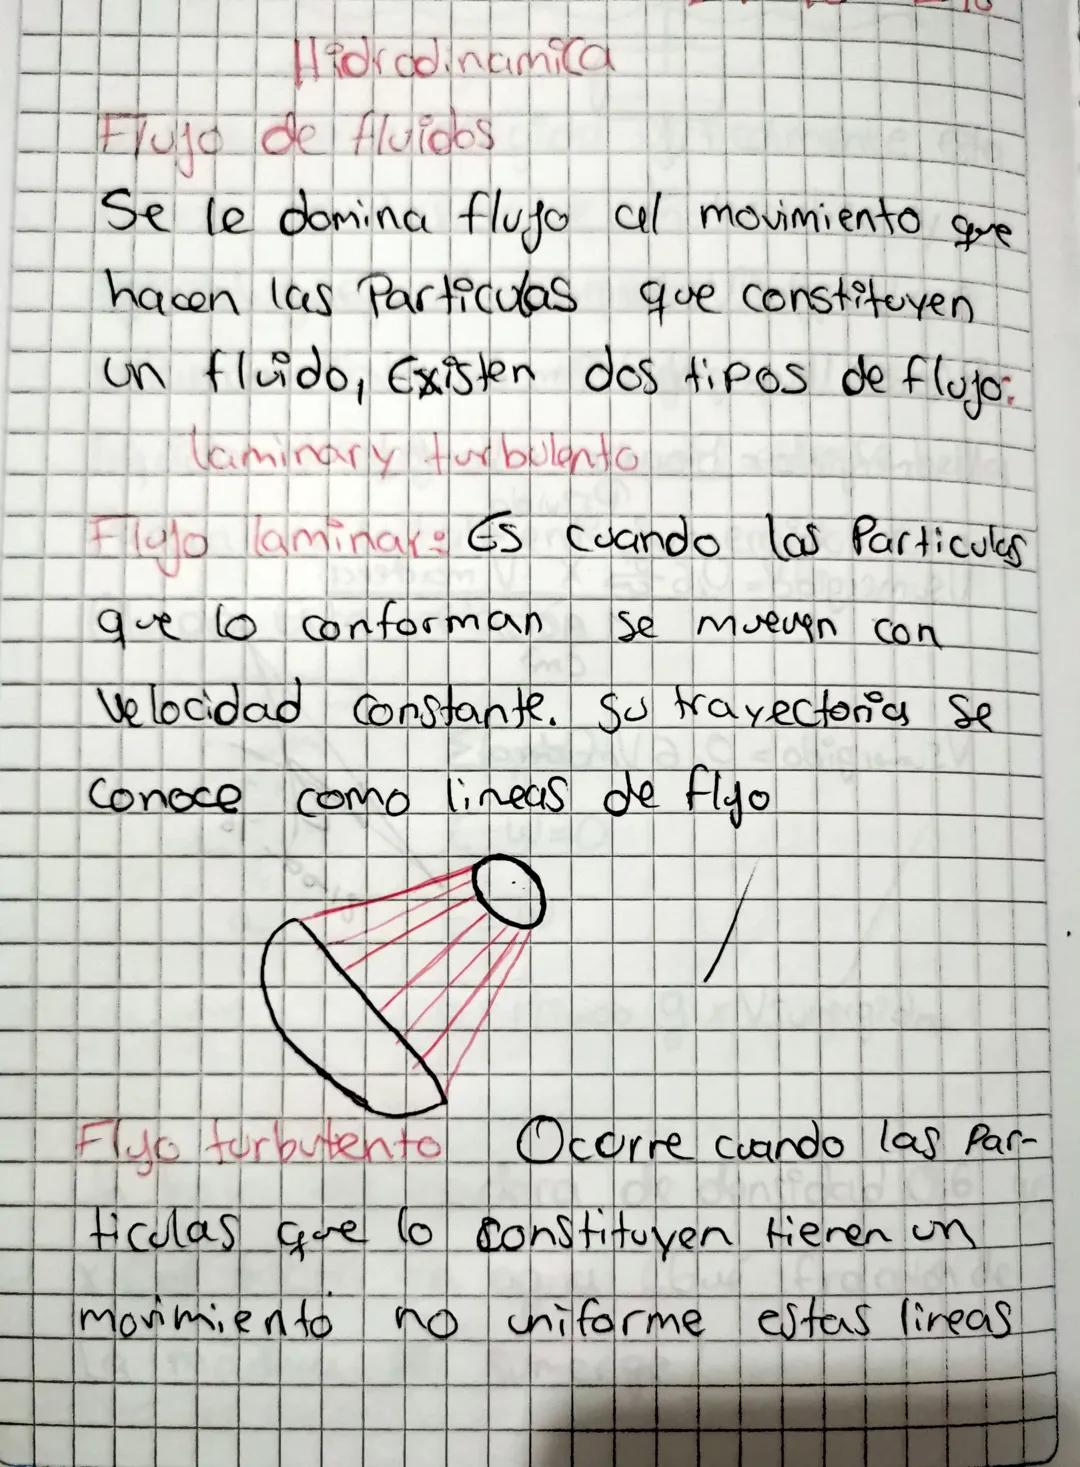 Hidrodinamica
Flujo de fluidos
Se le domina flujo al movimiento que
hacen las Particulas que constituyen
un fluido, Existen dos tipos de flujo:
laminar y turbulento
Flujo laminar: Es cuando las Particulas
que lo conforman se mueven con
velocidad constante. su trayectoria se
conoce como lineas de flyo
Flyo turbulento Ocurre cuando las Par-
ticulas que lo constituyen tienen un
movimiento no uniforme estas lineas